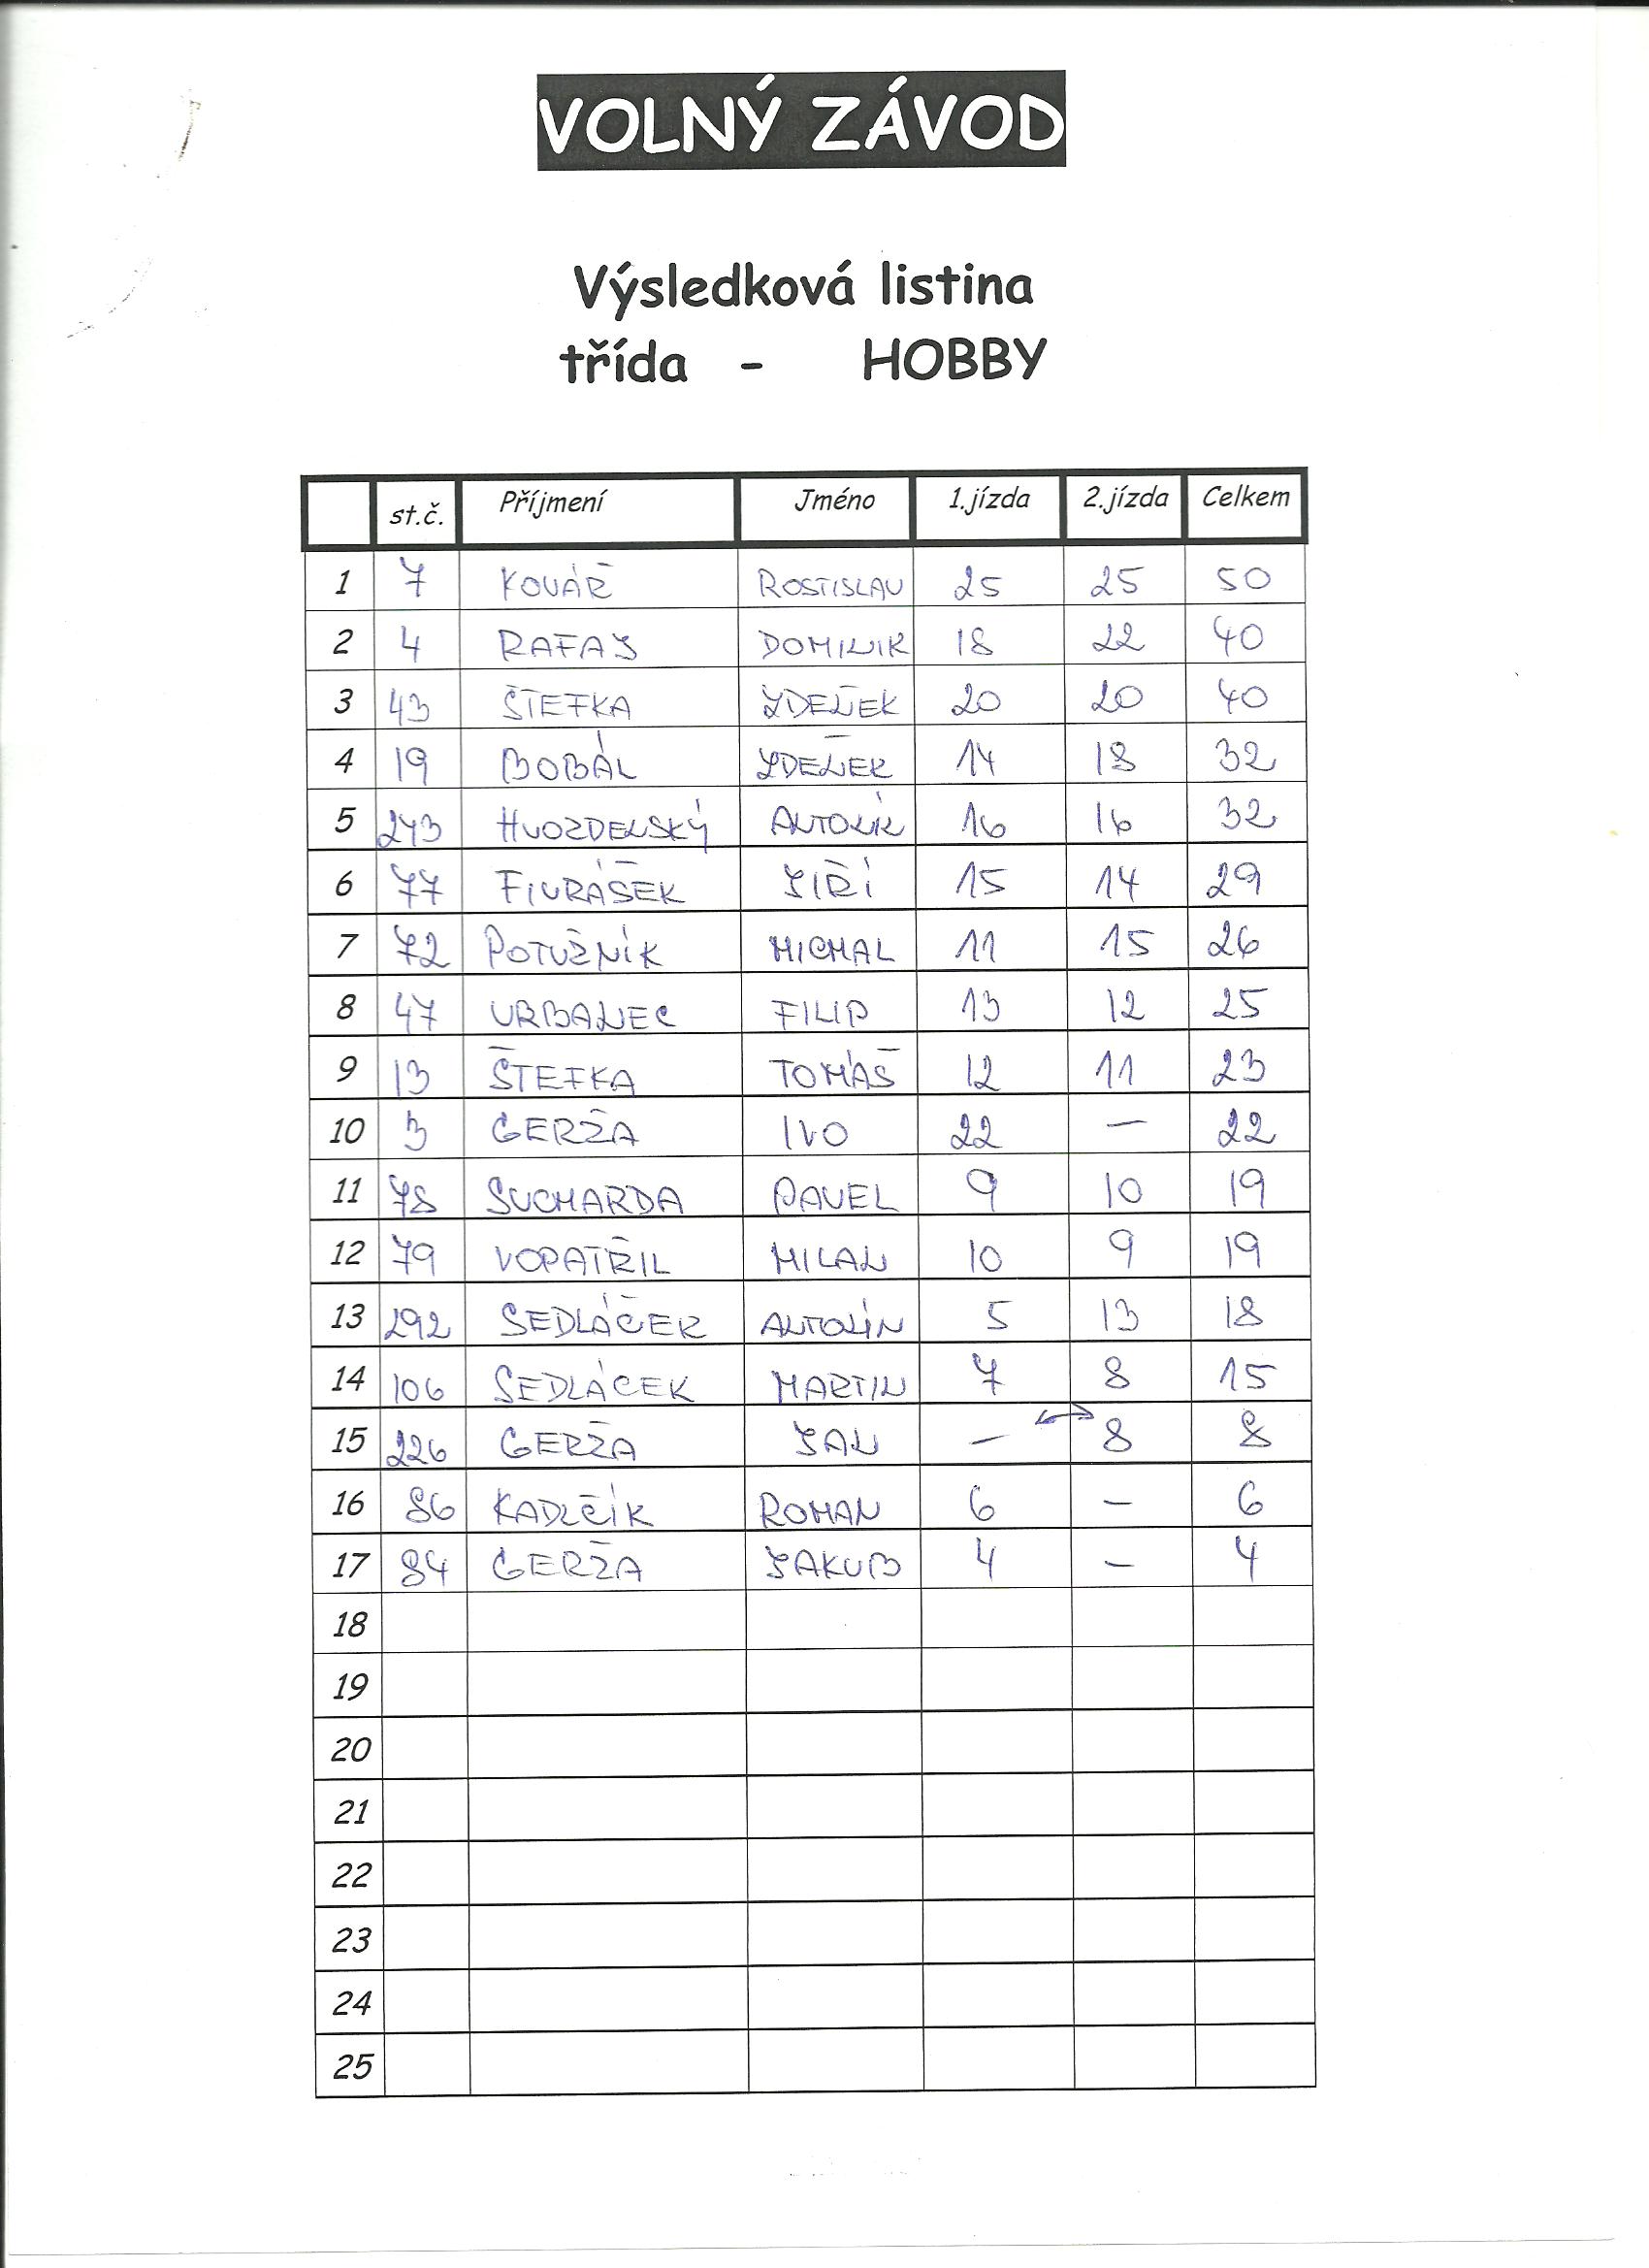 VOLNÝ ZÁVOD
Výsledková listina
třída - HOBBY
st.č. Příjmení Jméno 1.jízda 2.jízda Celkem
1 7 KOVÁŘ ROSTISLAV 25 25 50
2 4 RAFAJ DOMINIK 18 22 40
3 43 ŠTEFKA ZDENEK 20 20 40
4 19 BOBÁL ZDENEK 14 18 32
5 243 HVOZDENSKÝ ANTONÍN 16 16 32
6 77 FIURÁŠEK JIŘÍ 15 14 29
7 72 POTUŽNÍK MICHAL 11 15 26
8 47 URBANEC FILIP 13 12 25
9 13 ŠTEFKA TOMÁŠ 12 11 23
10 3 GERŽA IVO 22 — 22
11 78 SUCHARDA PAVEL 9 10 19
12 79 VOPATŘIL MILAN 10 9 19
13 292 SEDLÁČEK ANTONÍN 5 13 18
14 106 SEDLÁČEK MARTIN 7 8 15
15 226 GERŽA JAN – 8 8
16 86 KADLČÍK ROMAN 6 – 6
17 84 GERŽA JAKUB 4 – 4
18
19
20
21
22
23
24
25